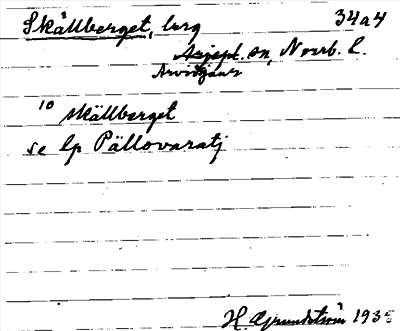 Skällberget, berg 34a4
Arjepl. sn, Norrb. l.
Arvidsjaur
10 skällberget
se lp Pällovaratj
H. Grundström 1935